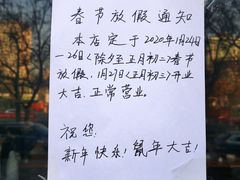 春节放假通知
本店定于2020年1月24日
—26日(除夕至正月初二)春节
放假,1月27日(正月初三)开业
大吉,正常营业。
祝您:
新年快乐!鼠年大吉!